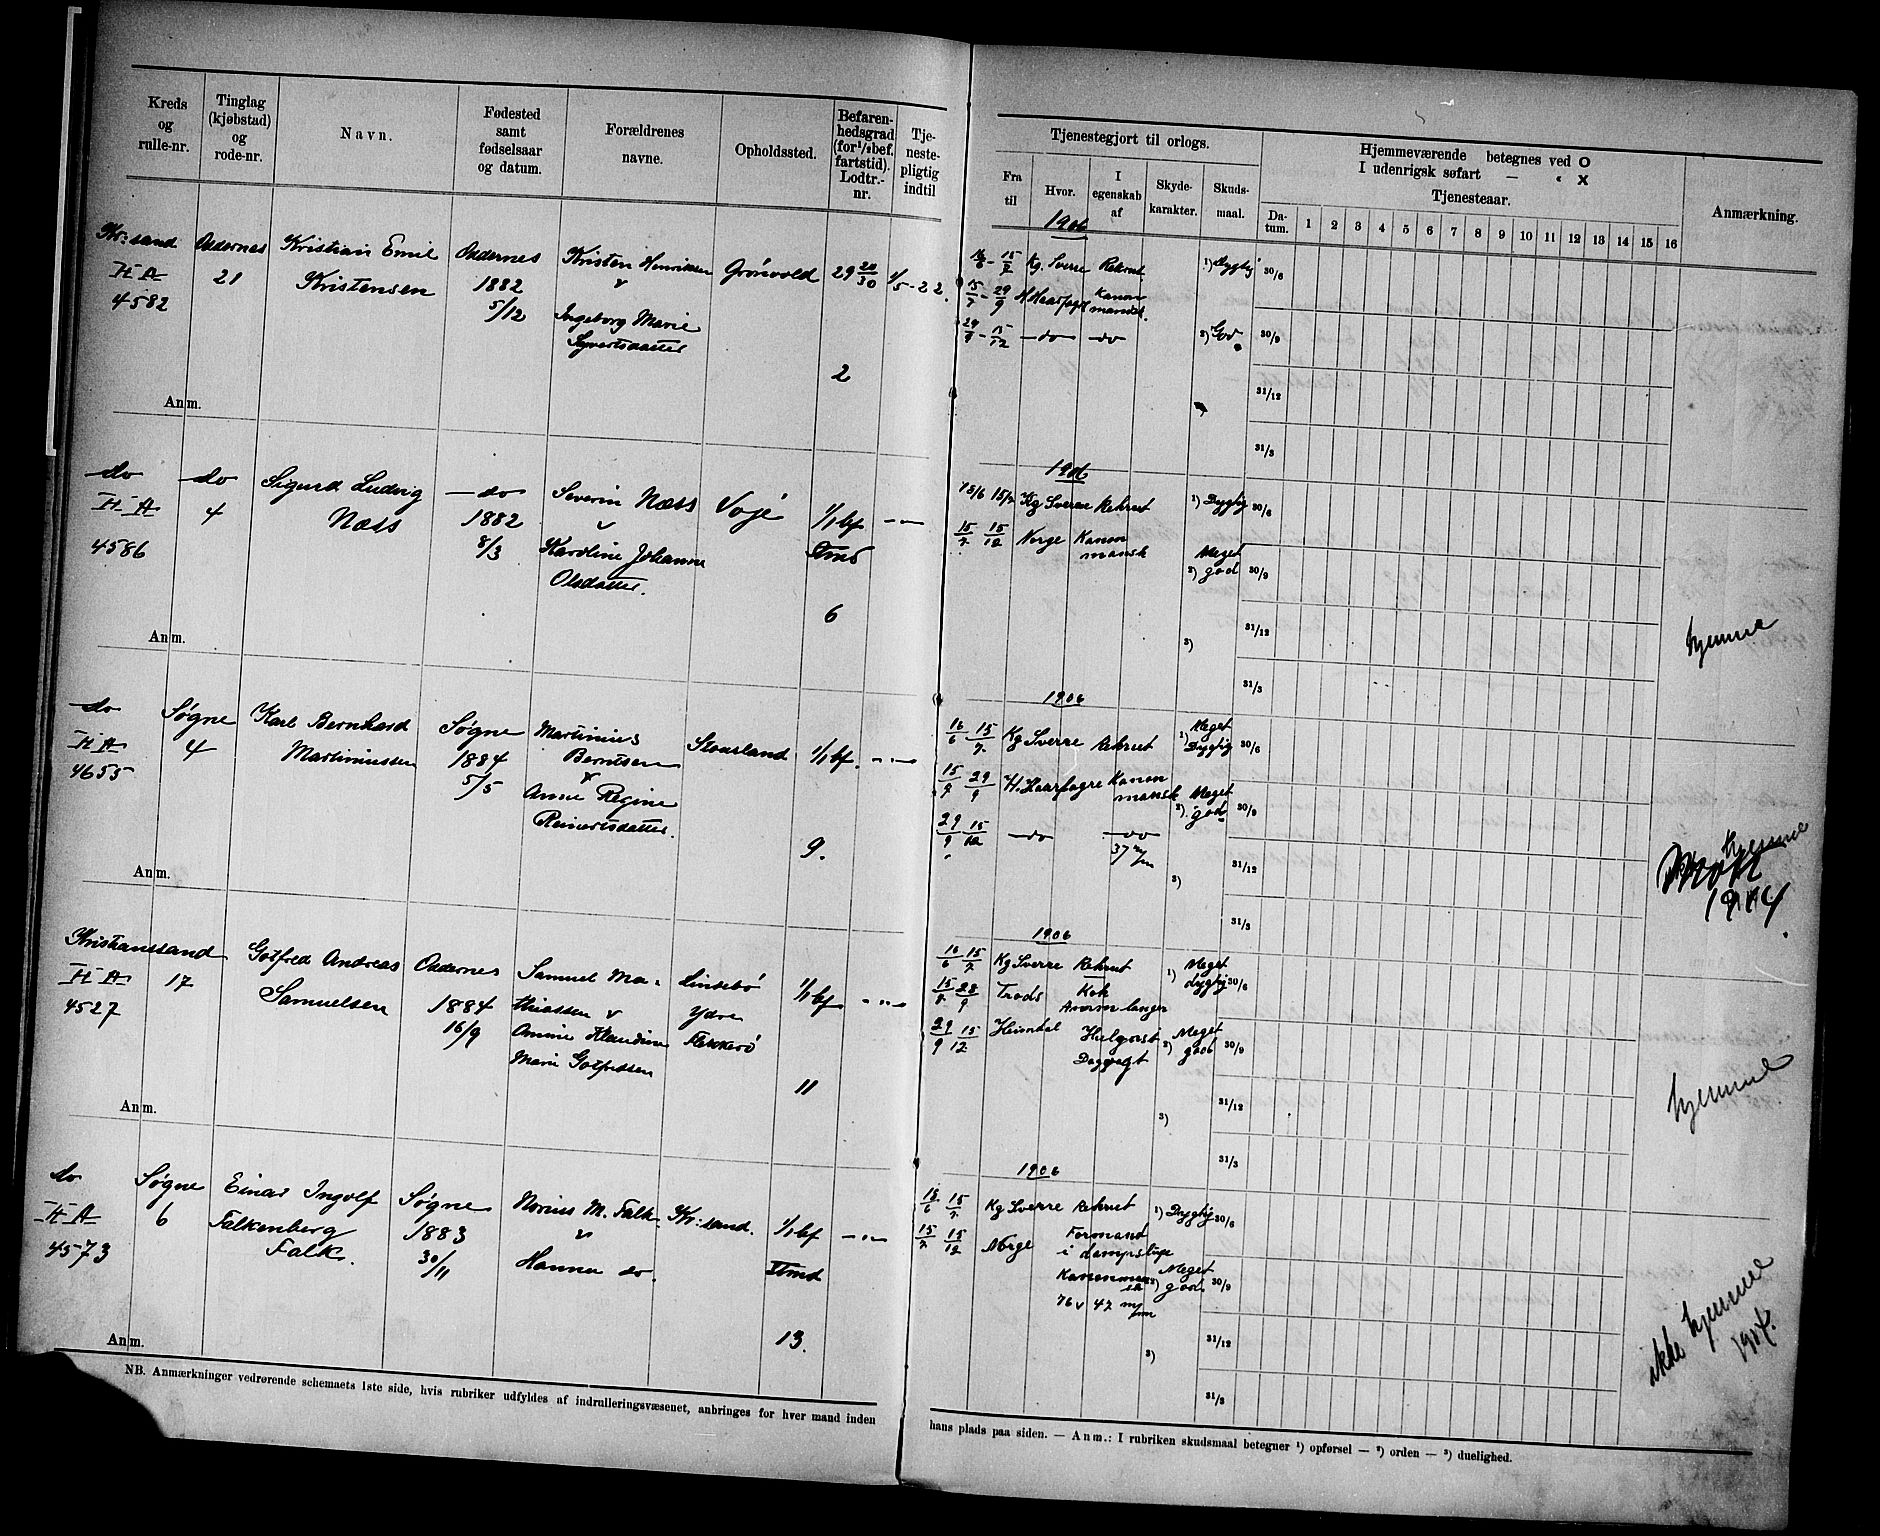 Kreds og rulle-nr.
Tinglag (kjøbstad) og rode-nr.
Navn.
Fødested samt fødselsaar og datum.
Forældrenes navne.
Opholdssted.
Befarenhedsgrad (for 1/1 bef. fartstid). Lodtr.-nr.
Tjenestepligtig indtil
Tjenestegjort til orlogs.
Fra til
Hvor.
I egenskab af
Skydekarakter.
Skudsmaal.
Hjemmeværende betegnes ved O
I udenrigsk søfart — " X
Tjenesteaar.
Datum. 1 2 3 4 5 6 7 8 9 10 11 12 13 14 15 16
Anmærkning.
Kr:sand
II A
4582
Oddernes
21
Kristian Emil
Kristensen
Oddernes
1882
5/12
Kristen Henriksen
v
Ingeborg Marie
Syvertsdatter
Grønvold
29 20/30
2
1/5-22.
1906
16/6 - 15/7 Kg. Sverre Rekrut 1) Dygtig 30/6
15/7 - 29/9 H Haarfagre Kanonmandsk.
29/9 - 15/12 —do— —do— 2) God 30/9
31/12
31/3
Anm.
do
II A
4586
do
4
Sigurd Ludvig
Næss
—do
1882
8/3
Severin Næss
v
Karoline Johanne
Olsdatter.
Voje
1/1 bf
6
1906
15/6 15/7 Kg Sverre Rekrut 1) Dygtig 30/6
15/7 15/12 Norge Kanonmansk Meget
2) god 30/9
3) 31/12
31/3
hjemme
Anm.
do
II A
4655
Søgne
4
Karl Bernhard
Martiniussen
Søgne
1884
5/5
Martinius
Berntsen
v
Anne Regine
Reinertsdatter.
Stousland
1/1 bf.
9.
1906
16/6 - 15/7 Kg Sverre Rekrut 1) Meget Dygtig 30/6
15/7 29/9 H. Haarfagre Kanonmansk 2) Meget god 30/9
29/9 15/12 —do —do
37 m/m
3) 31/12
31/3
hjemme
1914
Anm.
Kristianssand
II A
4527
17
Gotfred Andreas
Samuelsen
Oddernes
1884
16/9
Samuel Mathiassen v
Amine Klaudine
Marie Gotfredsen
Lindebø
Ydre
Flekkerø
1/1 bf
11
1906
16/6 15/7 Kg Sverre Rekrut 1) Meget dygtig 30/6
15/7 28/9 Trods Kok
29/9 15/12 Heimdal 2) Meget god 30/9
3) 31/12
31/3
hjemme
Anm.
do
II A
4573
Søgne
6
Einar Ingolf
Falkenberg
Falk.
Søgne
1883
30/11
Norius M. Falk
v
Hanna do.
Kr:sand.
1/1 bf
13.
1906
15/6 15/7 Kg Sverre Rekrut 1) Dygtig 30/6
15/7 15/12 Norge Formand
i dampslup
Kanonmansk 2) Meget god 30/9
76 v 47 m/m
3) 31/12
31/3
ikke hjemme
1914.
Anm.
NB. Anmærkninger vedrørende schemaets 1ste side, hvis rubriker udfyldes af indrulleringsvæsenet, anbringes for hver mand inden
hans plads paa siden. — Anm.: I rubriken skudsmaal betegner 1) opførsel — 2) orden — 3) duelighed.